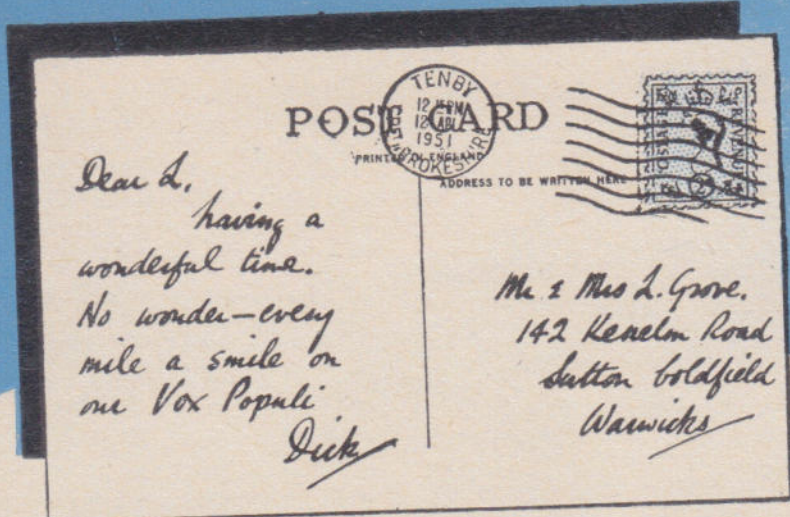 POST CARD
TENBY
12 15PM
12 APL
1951
PEMBROKESHIRE
PRINTED IN ENGLAND
ADDRESS TO BE WRITTEN HERE
POSTAGE
REVENUE
Dear L,
having a
wonderful time.
No wonder—every
mile a smile on
our Vox Populi
Dick
Mr & Mrs L. Grove.
142 Kenelm Road
Sutton Coldfield
Warwicks